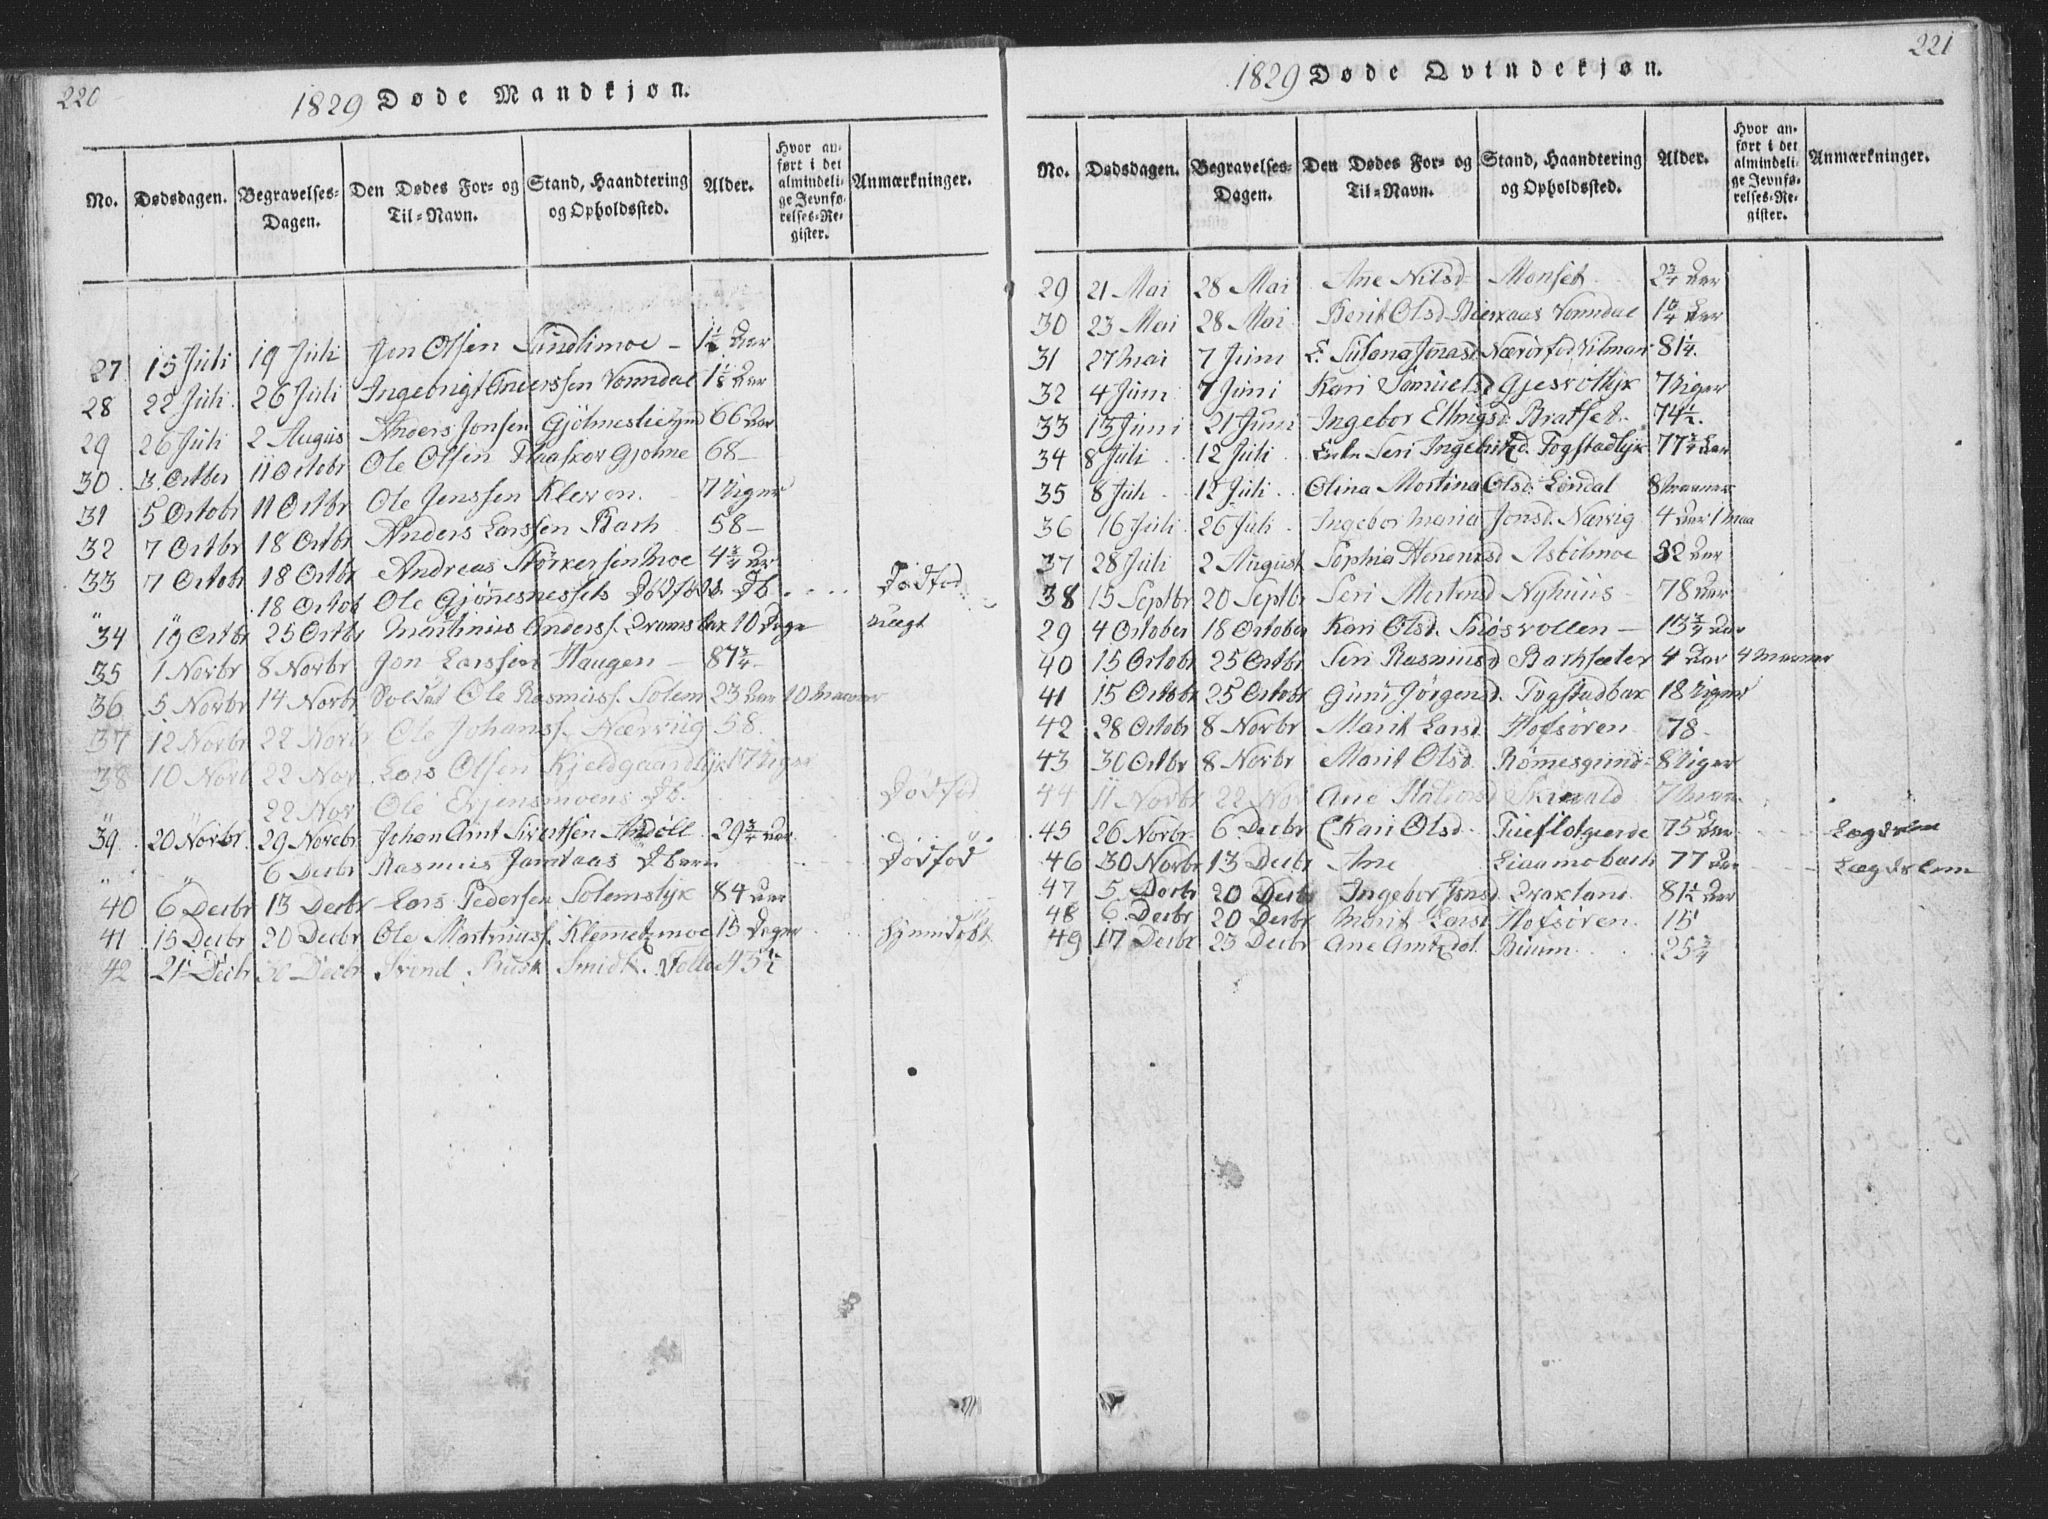 220
1829 Døde Mandkjøn.
No. Dødsdagen. Begravelses-Dagen. Den Dødes For- og Til-Navn. Stand, Haandtering og Opholdssted. Alder. Hvor anført i det almindelige Jevnførelses-Register. Anmærkninger.
27 15 Juli 19 Juli Jon Olsen Sundlimoe - 1 1/2 Aar
28 22 Juli 26 Juli Ingebrigt Anderssen Vonndal 1 1/8 Aar
29 26 Juli 2 Augus Anders Jonsen 66 Aar
30 3 Ortber 11 Ortobr Ole Olsen Gjønne 68 -
31 5 Ortobr 11 Ortbr Ole Jenssen Kleven. - 7 Uger
32 7 Ortbr 18 Ortbr Anders Larssen Bach 58 -
33 7 Ortobr 18 Ortbr Andreas Størkersen Moe 4 3/4 Ar
" " 18 Ortob Ole Gjønnesnessets Dødfødt Db. Dødfød
34 19 Ortbr 25 Ortbr Martinius Anderss. 10 Dage
35 1 Novbr 8 Novbr Jon Larssen Haugen - 87 3/4
36 5 Novbr 14 Novbr Soldat Ole Rasmuss. Solem 23 Aar 10 Maaner
37 12 Novbr 22 Novbr Ole Johanss. Nærvig 58.
38 10 Novb 22 Nov Lars Olsen Kjeldgaardslyk 17 Uger
" " 22 Nov Ole Evjensmoens Db. Dødfød
39 20 Novbr 29 Novebr Johan Arnt Sivertsen Indøll 29 3/4 Aar
" " 6 Decbr Rasmus Db Dødfød
40 6 Decbr 13 Decbr Lars Pedersen Solemslyk 84 Aar
41 15 Decbr 20 Decbr Ole Martinuss. Klemetzmoe 15 Dager Hjemdøbt
42 21 Decb 30 Decbr Svend Busk Smidt. 43 1/2
221
1829 Døde Qvindekjøn.
No. Dødsdagen. Begravelses-Dagen. Den Dødes For- og Til-Navn. Stand, Haandtering og Opholdssted. Alder. Hvor anført i det almindelige Jevnførelses-Register. Anmærkninger.
29 21 Mai 28 Mai Ane Nilsd Monset 2 3/4 Aar
30 23 Mai 28 Mai Berit Olsd Vonndal Aar
31 27 Mai 7 Juni E. Jonasd 81 1/4.
32 4 Juni 7 Juni Kari Samuelsd Gjesvoldlyk 7 Uger
33 13 Juni 21 Juni Ingebor Ellingsd Bratset. 74 1/2.
34 8 Juli 12 Juli Enke Seri Ingebritzd. Togstadlyk 77 3/4 Aar
35 8 Juli 12 Juli Olina Martina Olsd. 8 Maaner
36 16 Juli 26 Juli Ingebor Maria Jonsd. Nærvig 4 Aar 1 Maa
37 28 Juli 2 August Sophia Asbølmoe 32 Aar
38 15 Septbr 20 Septbr Seri Mortensd Nyhuus - 78 Aar
29 4 October 18 October Kari Olsd. Snøsvollen - 13 3/4 Aar
40 15 Ortobr 25 Ortbr Seri Rasmusd Bachseter 4 Aar 4 Maaner
41 15 Ortobr 25 Ortobr Guru Jørgensd. Togstadbak 18 Uger
42 28 Ortobr 8 Novbr Marit Larsd. Hofsøren 78 -
43 30 Ortbr 8 Novbr Marit Olsd. Rømmesgrind 8 Uger
44 11 Novbr 22 Nov Ane 7 Maa
45 26 Novbr 6 Decbr E Kari Olsd. 75 Aar Lægdslem
46 30 Novbr 13 Decbr Ane 77 Aar Lægdslem
47 5 Decbr 20 Decbr Ingebor Jonsd. 81 1/2 Aar
48 6 Decbr 20 Decbr Marit Larsd Hofsøren. 15
49 17 Decbr 23 Decbr Ane Arntzdot. 25 3/4